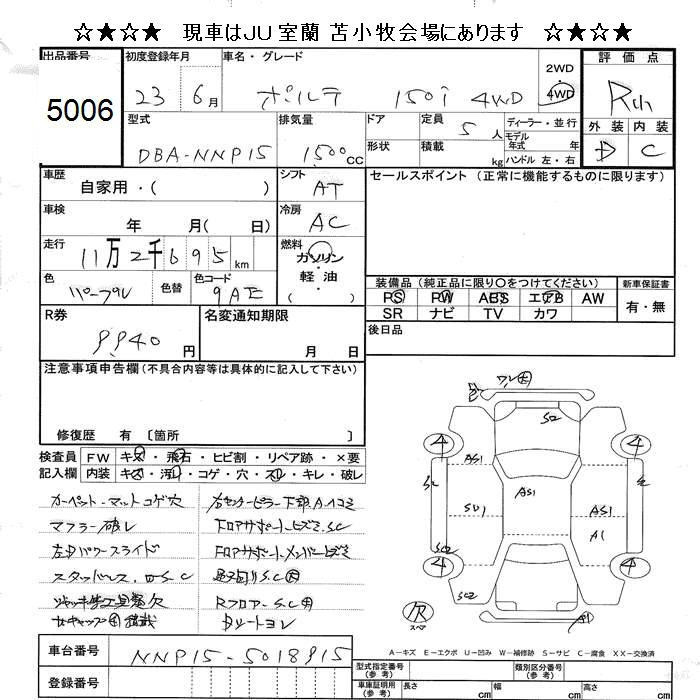 ★☆★☆ 現車はJU室蘭 苫小牧会場にあります ☆★☆★
出品番号 初度登録年月 車名・グレード 2WD 4WD 評価点
5006 23 6月 ポルテ 150i 4WD
型式 排気量 ドア 定員 5人 ディーラー・並行
モデル年式 年
外装 内装
DBA-NNP15 1500CC 形状 積載 kg ハンドル 左・右 C
車歴 自家用・( ) シフト AT セールスポイント (正常に機能するものに限ります)
車検 年 月( 日) 冷房 AC
走行 11万2千695km 燃料 ガソリン
軽・油
( )
色 パープル 色替 色コード 9AE
装備品 (純正品に限り〇をつけてください) 新車保証書
PS PW ABS エアB AW 有・無
SR ナビ TV カワ
R券 9,940円 名変通知期限 月 日 後日品
注意事項申告欄 (不具合内容等は具体的に記入して下さい)
修復歴 有 〔箇所
検査員 FW キズ・飛石・ヒビ割・リペア跡・×要
記入欄 内装 キズ・汚れ・コゲ・穴・スレ・キレ・破レ
カーペット・マットコゲ穴 右センターピラー下部
マフラー破レ フロアサポートヒズミ.SC
左Dパワースライド フロアサポート.メンバーヒズミ
スタッドレス
ジャッキ Rフロアー.SC
積載
S2
4 4
AS1 AS1 SD1 AS1 A1
SC2 4 4
欠
スペア
A-キズ E-エクボ U-凹み W-補修跡 S-サビ C-腐食 XX-交換済
車台番号 NNP15-5018915
登録番号
型式指定番号 (参考) 類別区分番号 (参考)
車庫証明用 (参考) 長さ cm 幅 cm 高さ cm